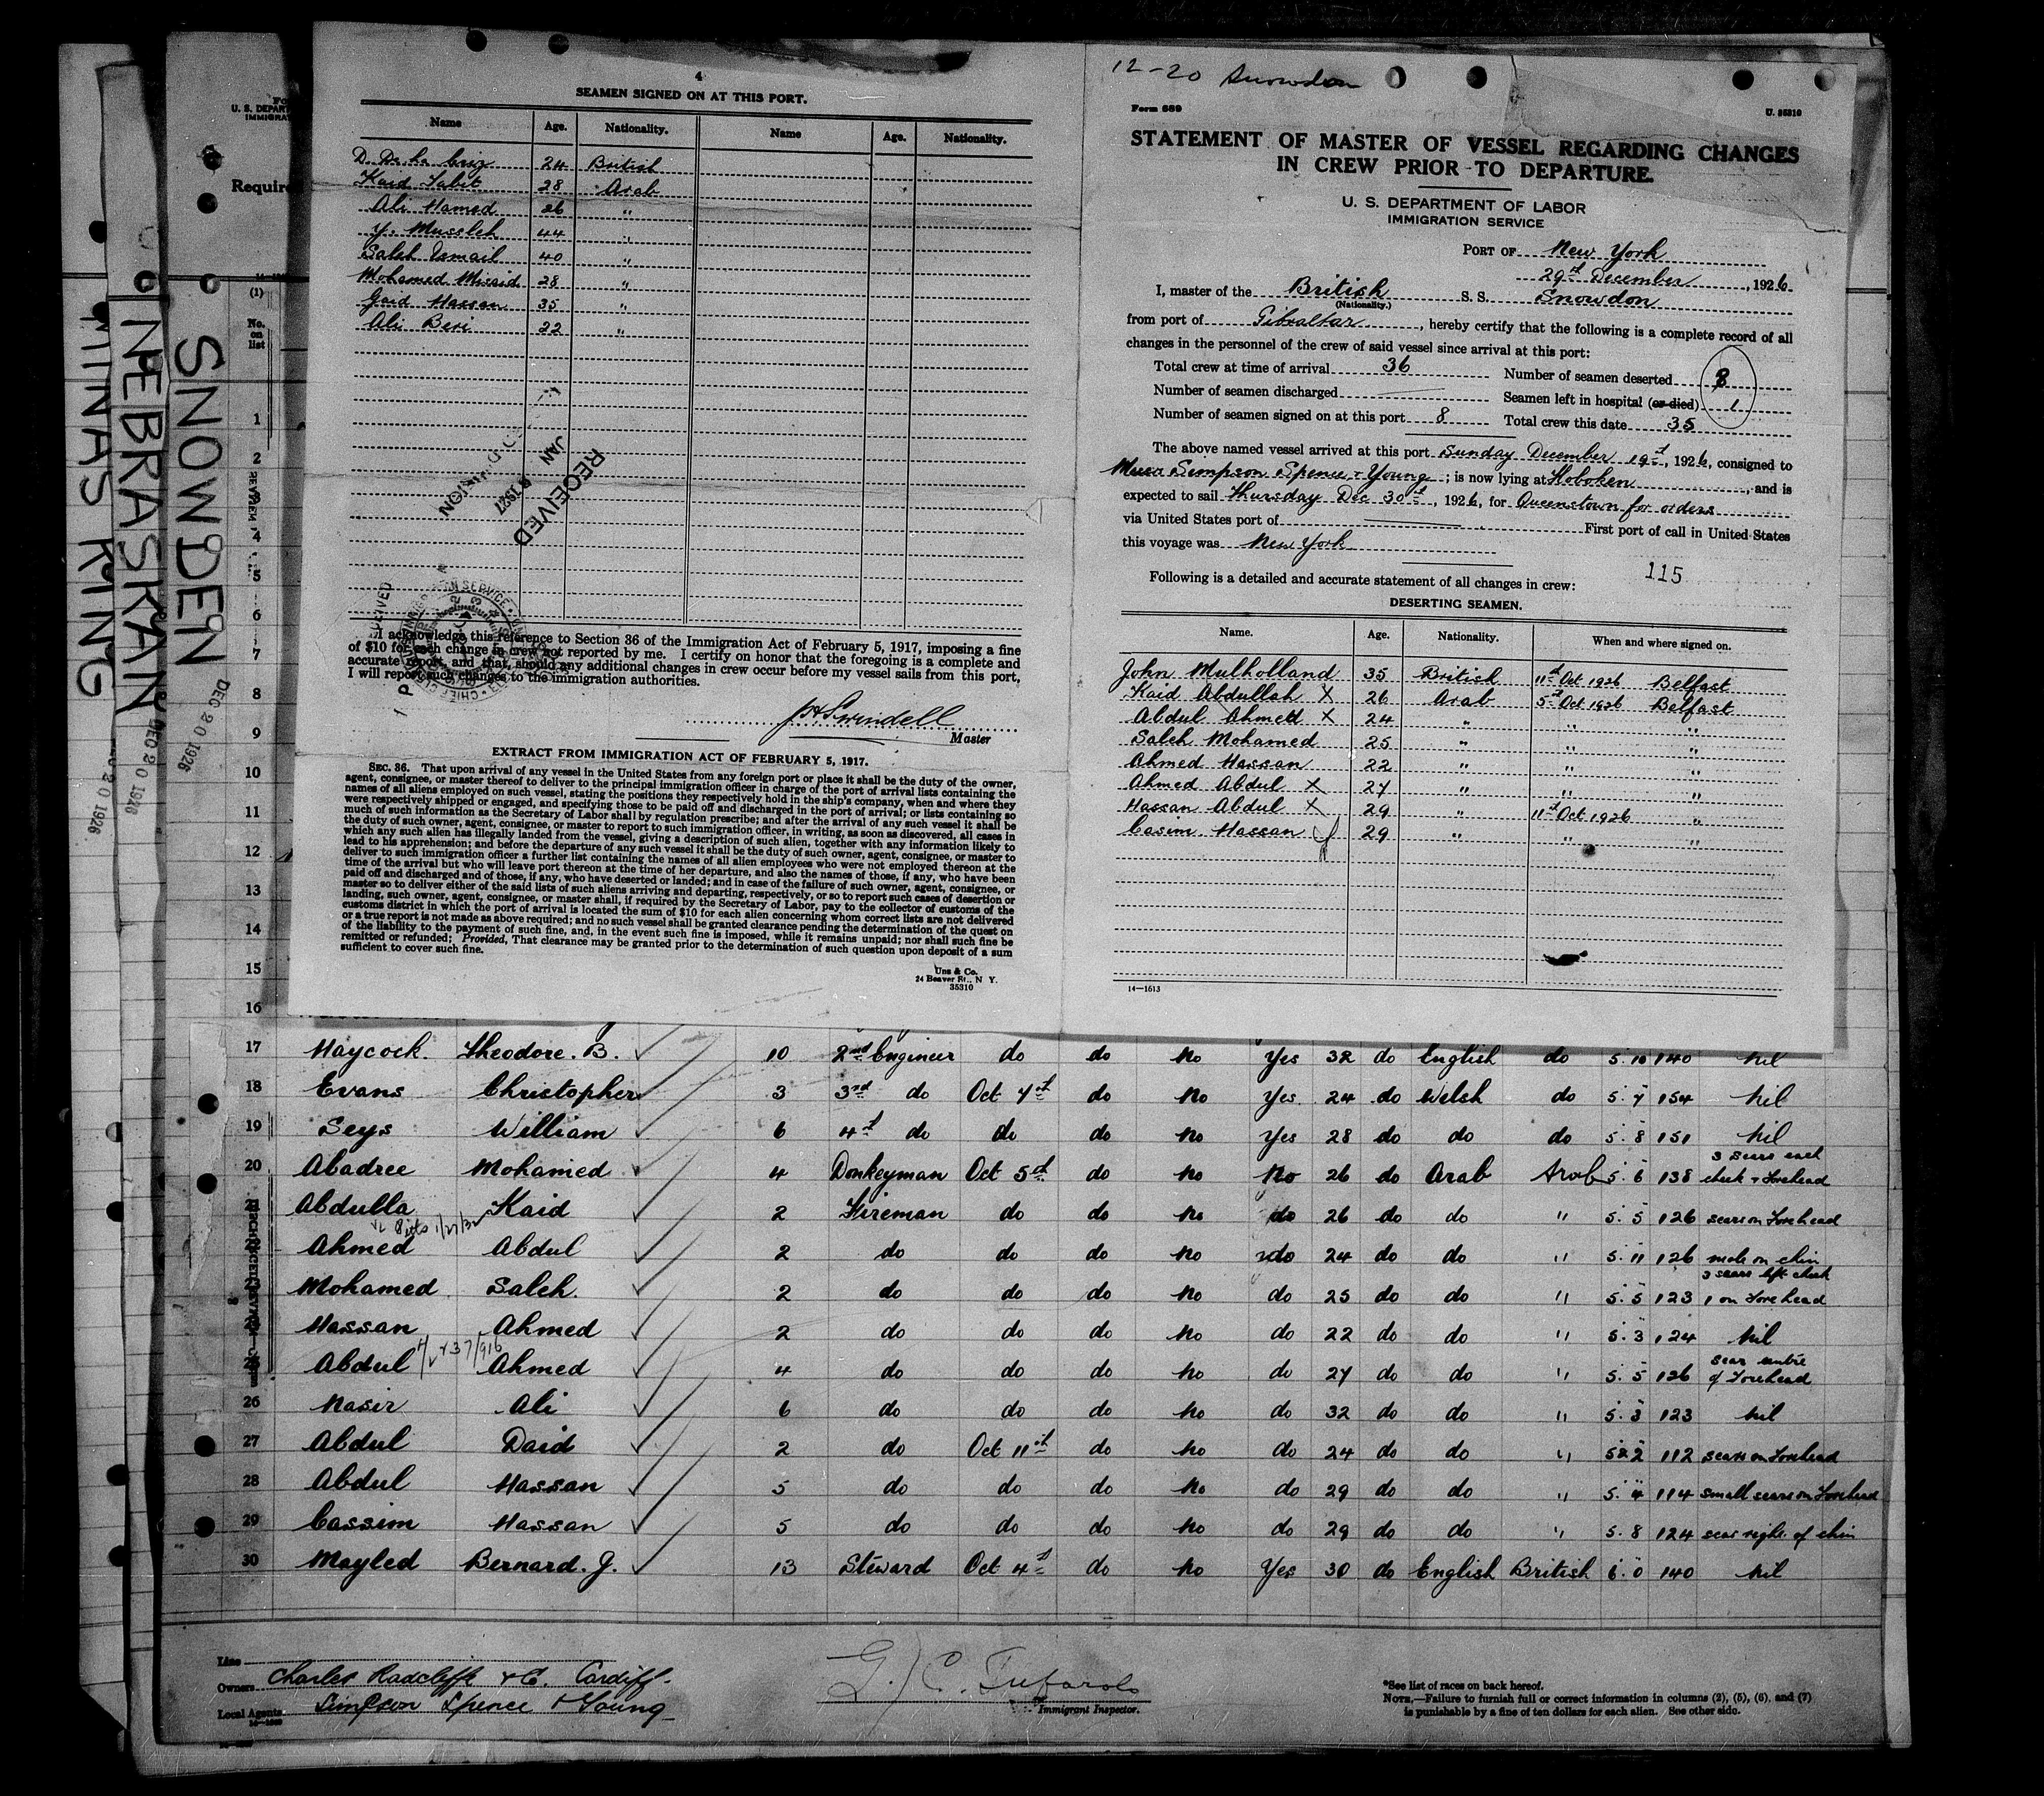 MINNAS KING
DEC 20 1926
NEBRASKAN
DEC 20 1926
SNOWDEN
DEC 20 1926
U. S. DEPART
IMMIGRAT
Require
(1)
No.
on
list
1
2
4
5
6
7
8
9
10
11
12
13
14
15
16
4
SEAMEN SIGNED ON AT THIS PORT.
Name Age. Nationality. Name Age. Nationality.
D. De La Cruz 24 British
Kaid Sabit 28 Arab
Ali Hamed 26 "
Y. Mussleh 44 "
Saleh Ismail 40 "
Mohamed Musaid 28 "
Gaid Hassan 35 "
Ali Beri 22 "
RECEIVED
JAN 1927
I acknowledge this reference to Section 36 of the Immigration Act of February 5, 1917, imposing a fine
of $10 for each change in crew not reported by me. I certify on honor that the foregoing is a complete and
accurate report, and that, should any additional changes in crew occur before my vessel sails from this port,
I will report such changes to the immigration authorities.
J H Swindell
Master
EXTRACT FROM IMMIGRATION ACT OF FEBRUARY 5, 1917.
SEC. 36. That upon arrival of any vessel in the United States from any foreign port or place it shall be the duty of the owner,
agent, consignee, or master thereof to deliver to the principal immigration officer in charge of the port of arrival lists containing the
names of all aliens employed on such vessel, stating the positions they respectively hold in the ship's company, when and where they
were respectively shipped or engaged, and specifying those to be paid off and discharged in the port of arrival; or lists containing so
much of such information as the Secretary of Labor shall by regulation prescribe; and after the arrival of any such vessel it shall be
the duty of such owner, agent, consignee, or master to report to such immigration officer, in writing, as soon as discovered, all cases in
which any such alien has illegally landed from the vessel, giving a description of such alien, together with any information likely to
lead to his apprehension; and before the departure of any such vessel it shall be the duty of such owner, agent, consignee, or master to
deliver to such immigration officer a further list containing the names of all alien employees who were not employed thereon at the
time of the arrival but who will leave port thereon at the time of her departure, and also the names of those, if any, who have been
paid off and discharged and of those, if any, who have deserted or landed; and in case of the failure of such owner, agent, consignee, or
master so to deliver either of the said lists of such aliens arriving and departing, respectively, or so to report such cases of desertion or
landing, such owner, agent, consignee, or master shall, if required by the Secretary of Labor, pay to the collector of customs of the
customs district in which the port of arrival is located the sum of $10 for each alien concerning whom correct lists are not delivered
or a true report is not made as above required; and no such vessel shall be granted clearance pending the determination of the quest on
of the liability to the payment of such fine, and, in the event such fine is imposed, while it remains unpaid; nor shall such fine be
remitted or refunded; Provided, That clearance may be granted prior to the determination of such question upon deposit of a sum
sufficient to cover such fine.
Uns & Co.
24 Beaver St., N Y.
35310
12-20 Snowdon
Form 689 U. 35310
STATEMENT OF MASTER OF VESSEL REGARDING CHANGES
IN CREW PRIOR TO DEPARTURE.
U. S. DEPARTMENT OF LABOR
IMMIGRATION SERVICE
PORT OF New York
29st December, 1926.
I, master of the British S. S. Snowdon
(Nationality.)
from port of Gibraltar, hereby certify that the following is a complete record of all
changes in the personnel of the crew of said vessel since arrival at this port:
Total crew at time of arrival 36 Number of seamen deserted 8
Number of seamen discharged Seamen left in hospital (or died) 1
Number of seamen signed on at this port 8 Total crew this date 35
The above named vessel arrived at this port Sunday December 19st, 1926, consigned to
Messrs Simpson Spence & Young; is now lying at Hoboken, and is
expected to sail Thursday Dec 30st, 1926, for Queenstown for orders
via United States port of First port of call in United States
this voyage was New York
115
Following is a detailed and accurate statement of all changes in crew:
DESERTING SEAMEN.
Name. Age. Nationality. When and where signed on.
John Mulholland 35 British 11st Oct 1926 Belfast
Kaid Abdullah X 26 Arab 5st Oct 1926 Belfast
Abdul Ahmed X 24 " " "
Saleh Mohamed 25 " " "
Ahmed Hassan 22 " " "
Ahmed Abdul X 27 " " "
Hassan Abdul X 29 " 11st Oct 1926 "
Casim Hassan 29 " " "
14—1613
17 Haycock. Theodore. B. 10 2nd Engineer do do No Yes 32 do English do 5.10 140 Nil
18 Evans Christopher 3 3rd do Oct 4th do No Yes 24 do Welsh do 5.7 154 Nil
19 Seys William 6 4th do do do No Yes 28 do do do 5.8 151 Nil
20 Abadree Mohamed 4 Donkeyman Oct 5th do No No 26 do Arab Arab 5.6 138 3 scars each cheek & Forehead
Abdulla Kaid 2 Fireman do do No do 26 do do " 5.5 126 scars on Forehead
Ahmed Abdul 2 do do do No do 24 do do " 5.11 126 mole on chin
Mohamed Saleh 2 do do do No do 25 do do " 5.5 123 3 scars left cheek 1 on Forehead
Hassan Ahmed 2 do do do No do 22 do do " 5.3 124 Nil
Abdul Ahmed 4 do do do No do 27 do do " 5.5 126 scar centre of Forehead
26 Nasir Ali 6 do do do No do 32 do do " 5.3 123 Nil
27 Abdul Daid 2 do Oct 11th do No do 24 do do " 5.2 112 scars on Forehead
28 Abdul Hassan 5 do do do No do 29 do do " 5.4 114 small scars on Forehead
29 Cassim Hassan 5 do do do No do 29 do do " 5.8 124 scar right of chin
30 Mayled Bernard. J. 13 Steward Oct 4th do No Yes 30 do English British 6.0 140 Nil
Line
Owners Charles Radcliffe & Co. Cardiff.
Local Agents Simpson Spence & Young
Immigrant Inspector.
*See list of races on back hereof.
NOTE.—Failure to furnish full or correct information in columns (2), (5), (6), and (7)
is punishable by a fine of ten dollars for each alien. See other side.